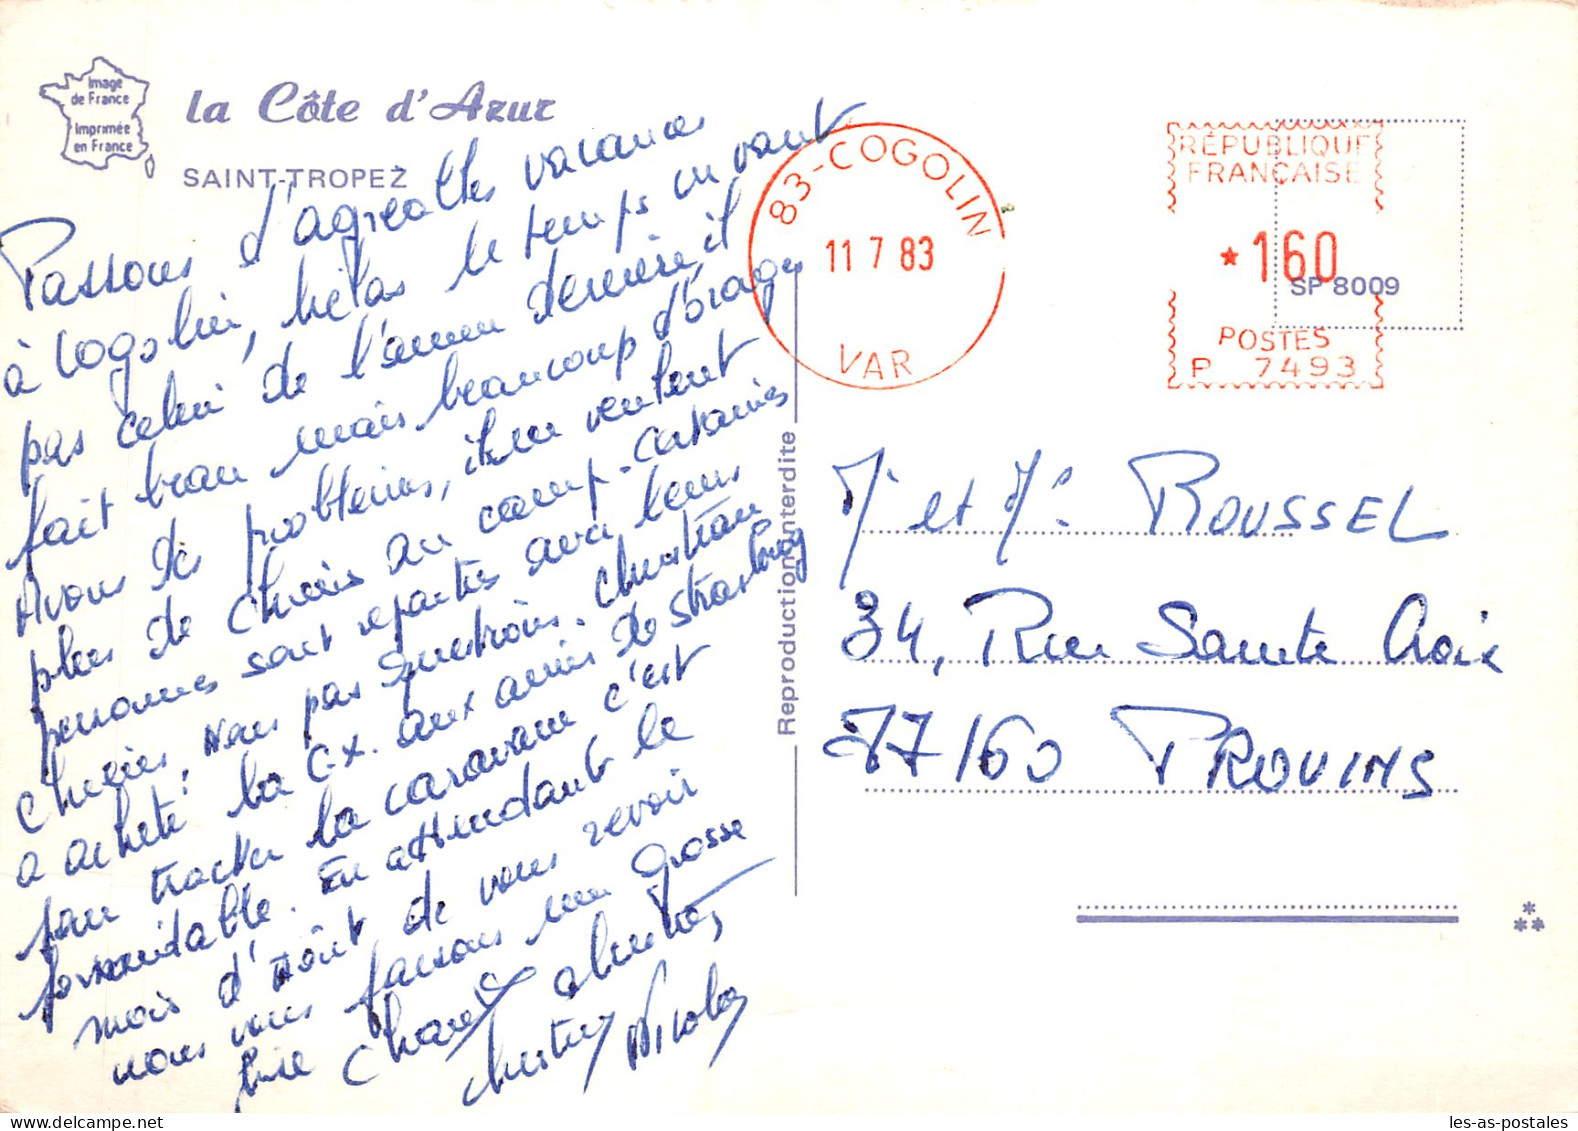 Image
de France
Imprimée
en France
la Côte d'Azur
SAINT-TROPEZ
Passons d'agréables vacances
à Cogolin, hélas le temps en vaut
pas celui de l'année dernière, il
fait beau mais beaucoup d'orages
Avons des problèmes, ils en veulent
plus de chiens au camp. Certaines
personnes sont reparties avec leurs
chiens, nous pas questions. Christian
a acheté la C.X. aux amis de Strasbourg
pour tracter la caravane c'est
formidable. En attendant le
mois d'Août de vous revoir
nous vous faisons une grosse
bise
Christian Nicolas
83-COGOLIN
11 7 83
VAR
RÉPUBLIQUE
FRANÇAISE
* 160
SP 8009
POSTES
P 7493
Reproduction interdite
Mr et Me ROUSSEL
34, Rue Sainte Croix
77160 PROVINS
les-as-postales